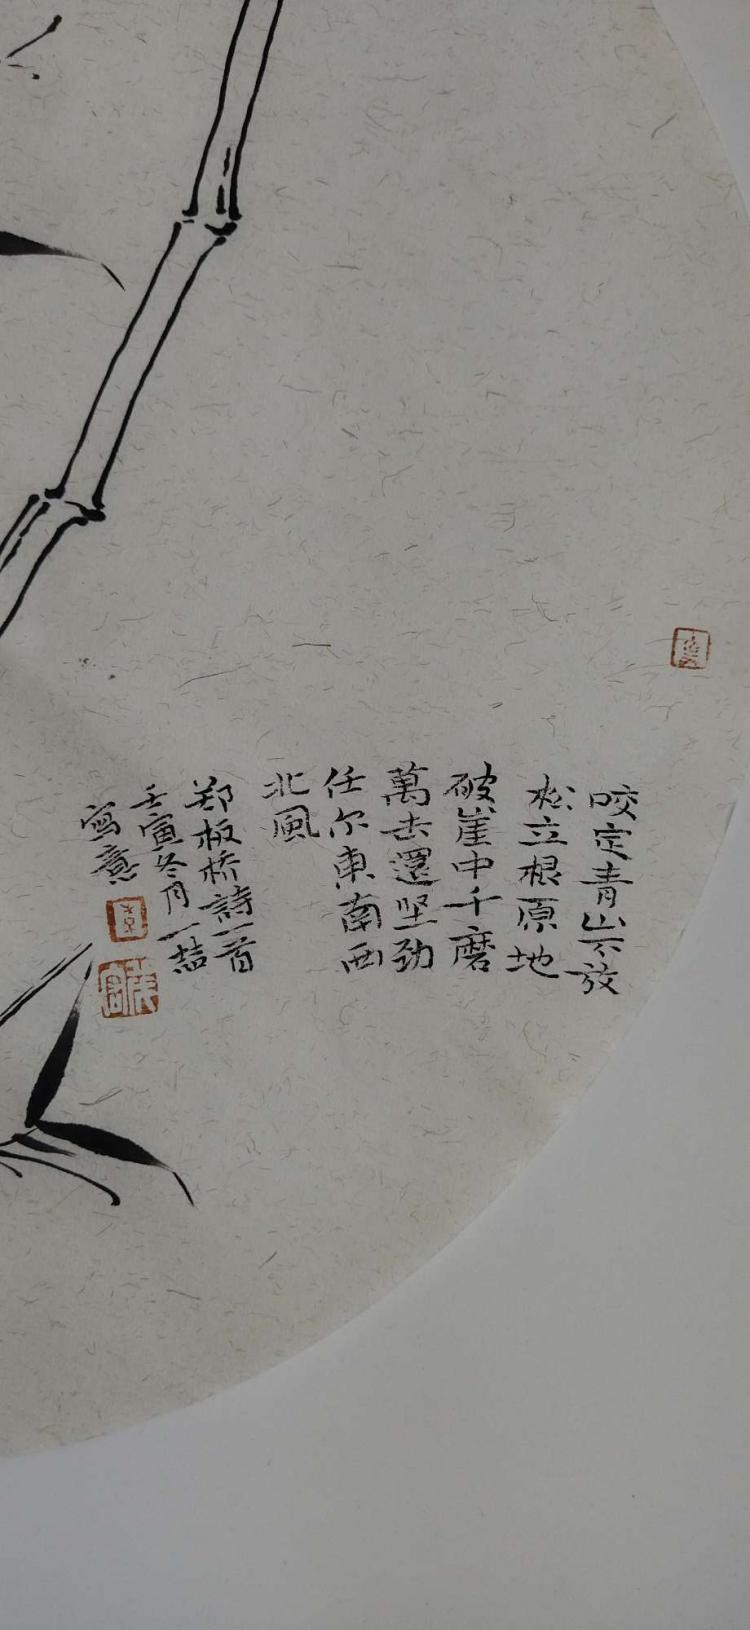 咬定青山不放
松立根原地
破崖中千磨
萬击還坚劲
任尔東南西
北風
郑板桥詩一首
壬寅冬月一喆
寫意